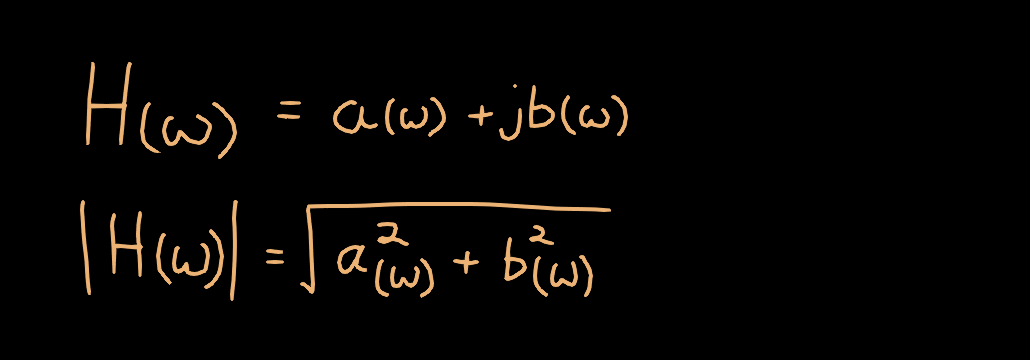 H(ω) = a(ω) + jb(ω)
|H(ω)| = √(a²(ω) + b²(ω))